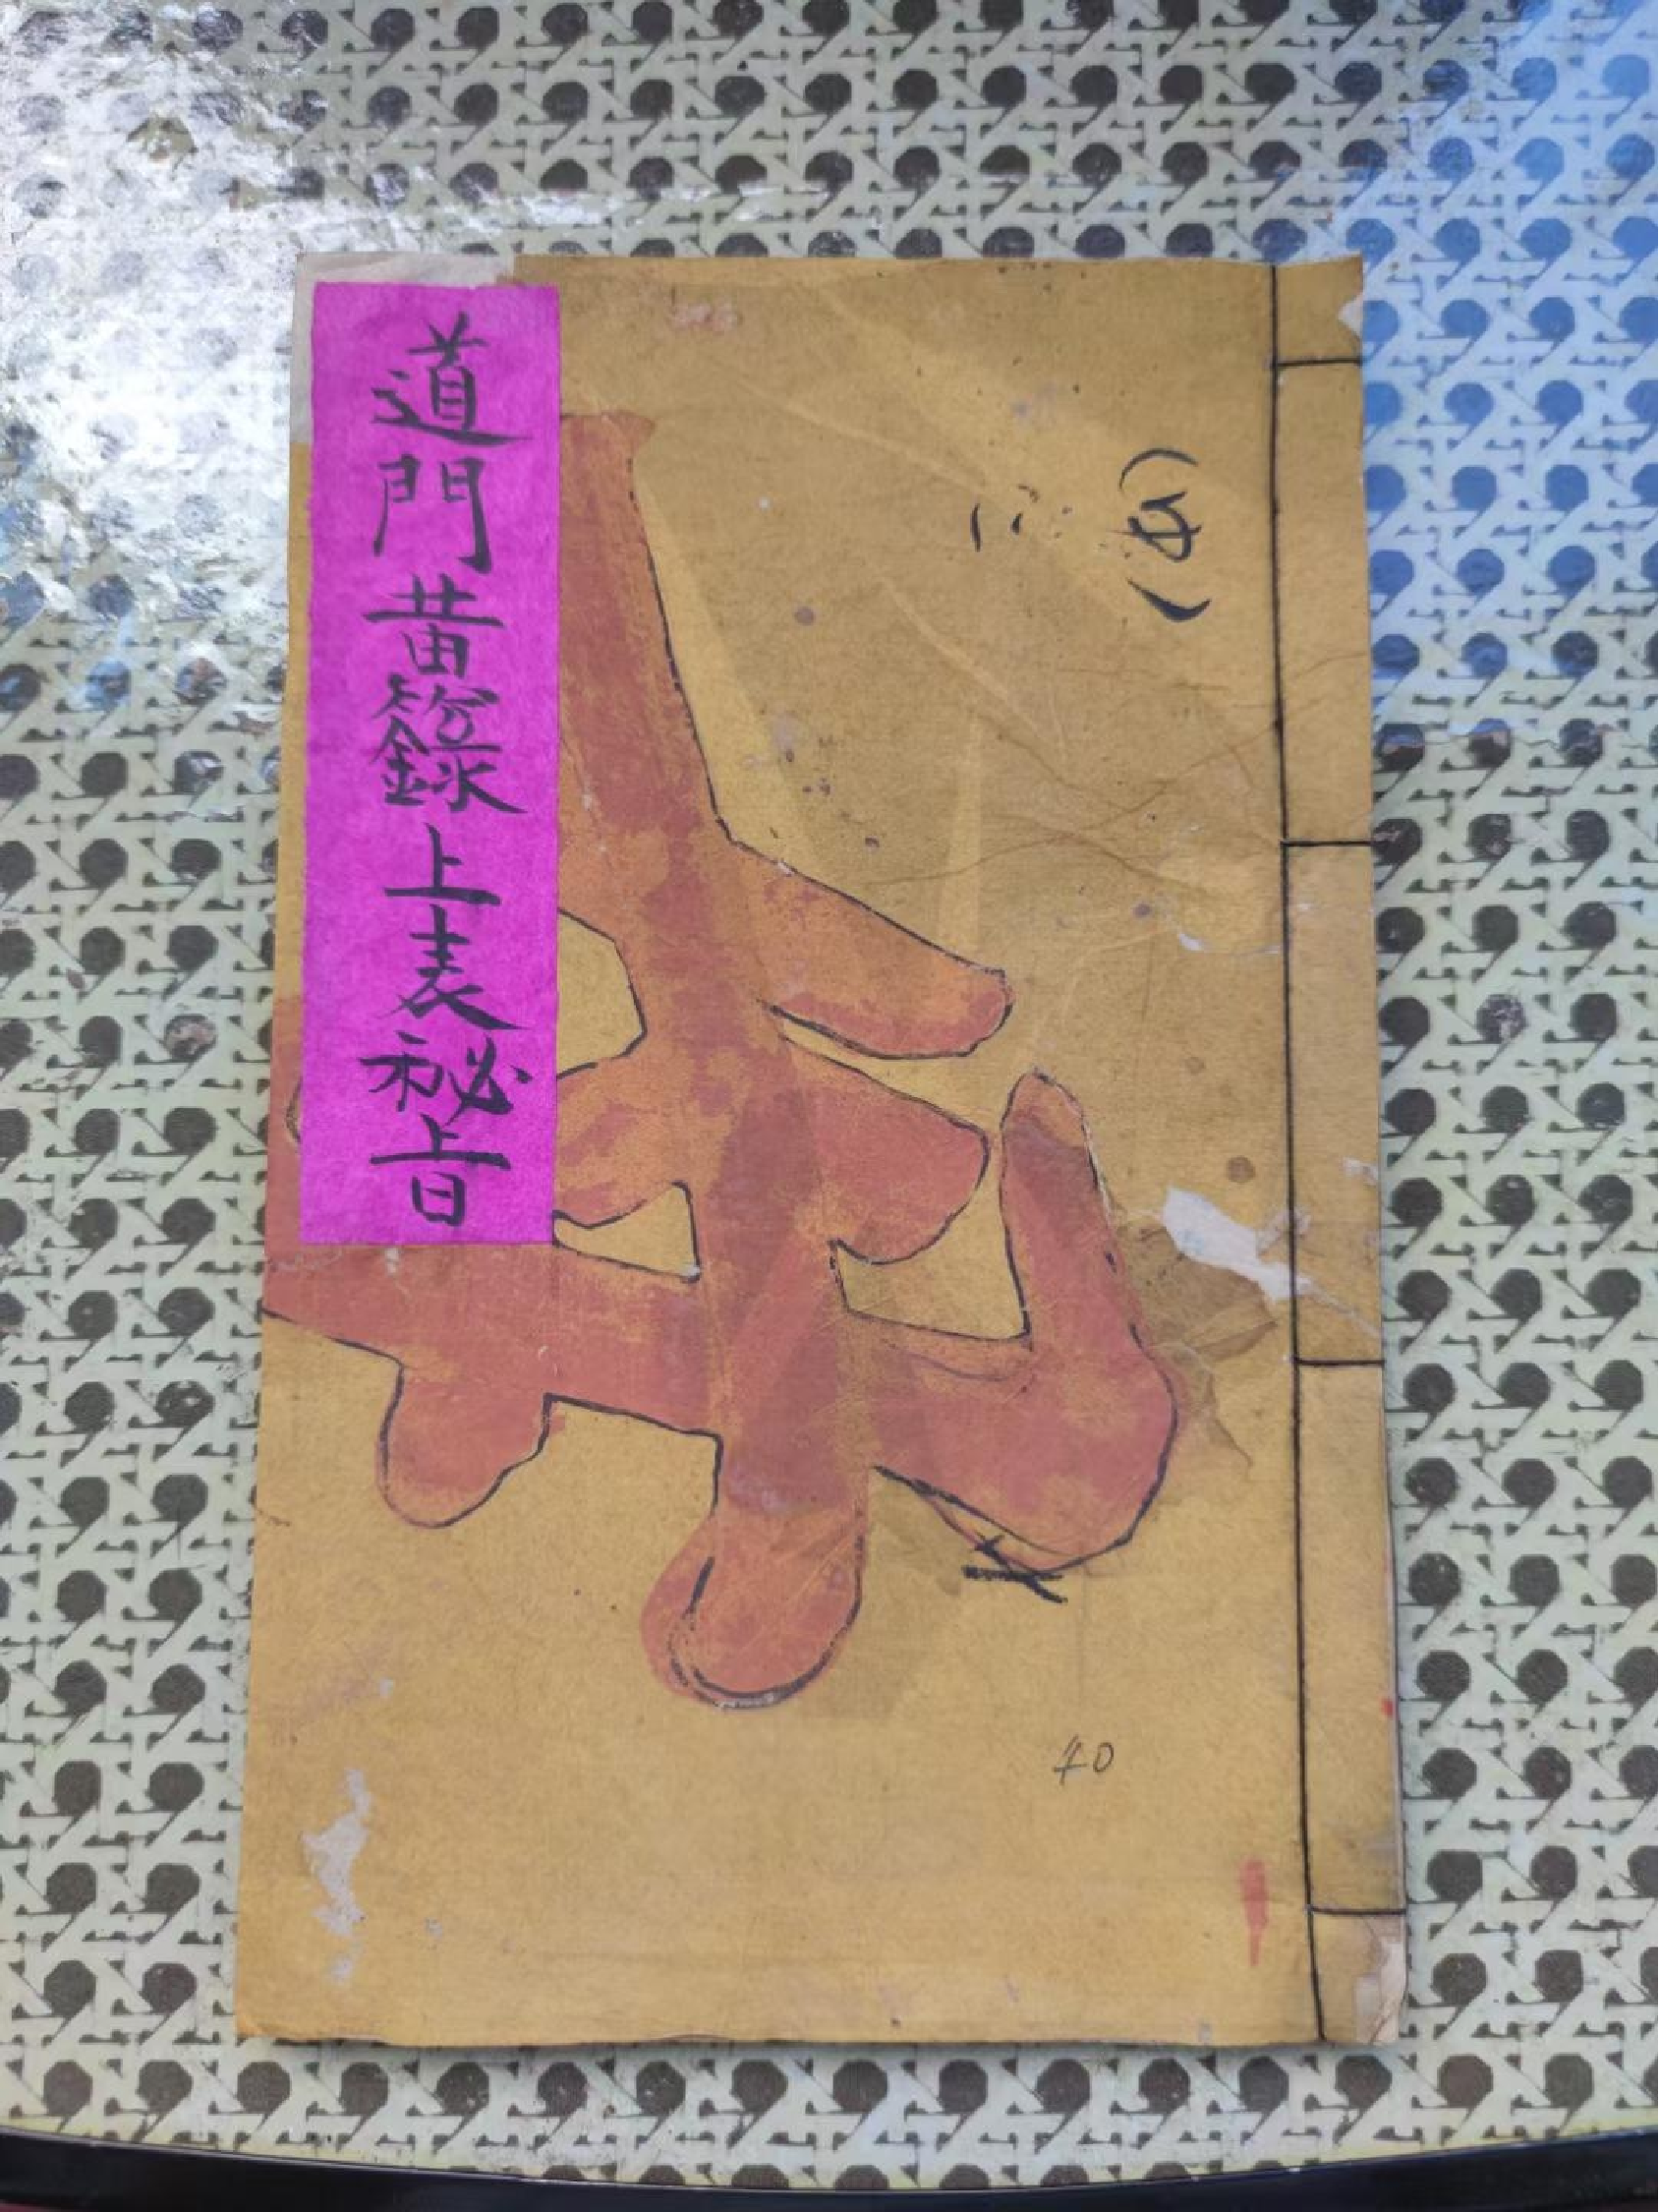 道門黄籙上表秘旨
40